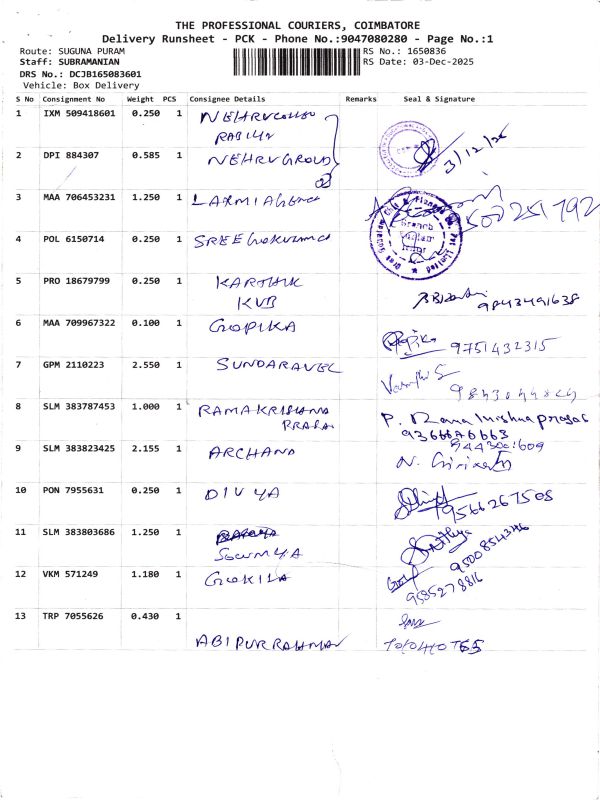 THE PROFESSIONAL COURIERS, COIMBATORE
Delivery Runsheet - PCK - Phone No.:9047080280 - Page No.:1
Route: SUGUNA PURAM RS No.: 1650836
Staff: SUBRAMANIAN RS Date: 03-Dec-2025
DRS No.: DCJB165083601
Vehicle: Box Delivery
S No Consignment No Weight PCS Consignee Details Remarks Seal & Signature
1 IXM 509418601 0.250 1
2 DPI 884307 0.585 1 NEHRU GROUP 3/12/25
3 MAA 706453231 1.250 1 LAXMI AGENCY
4 POL 6150714 0.250 1 SREE GOKULAMCH
Branch
5 PRO 18679799 0.250 1 KARTHIK
KVB 9843491638
6 MAA 709967322 0.100 1 GOPIKA 9751432315
7 GPM 2110223 2.550 1 SUNDARAVEL
8 SLM 383787453 1.000 1 RAMAKRISHNA P. Ramakrishnaprasad
PRASA 9366670663
9 SLM 383823425 2.155 1 ARCHANA 9443001609
10 PON 7955631 0.250 1 DIVYA 9566267508
11 SLM 383803686 1.250 1
SOWMYA 9500854346
12 VKM 571249 1.180 1 GOKILA 9585278816
13 TRP 7055626 0.430 1
ABIPURRAHMAN